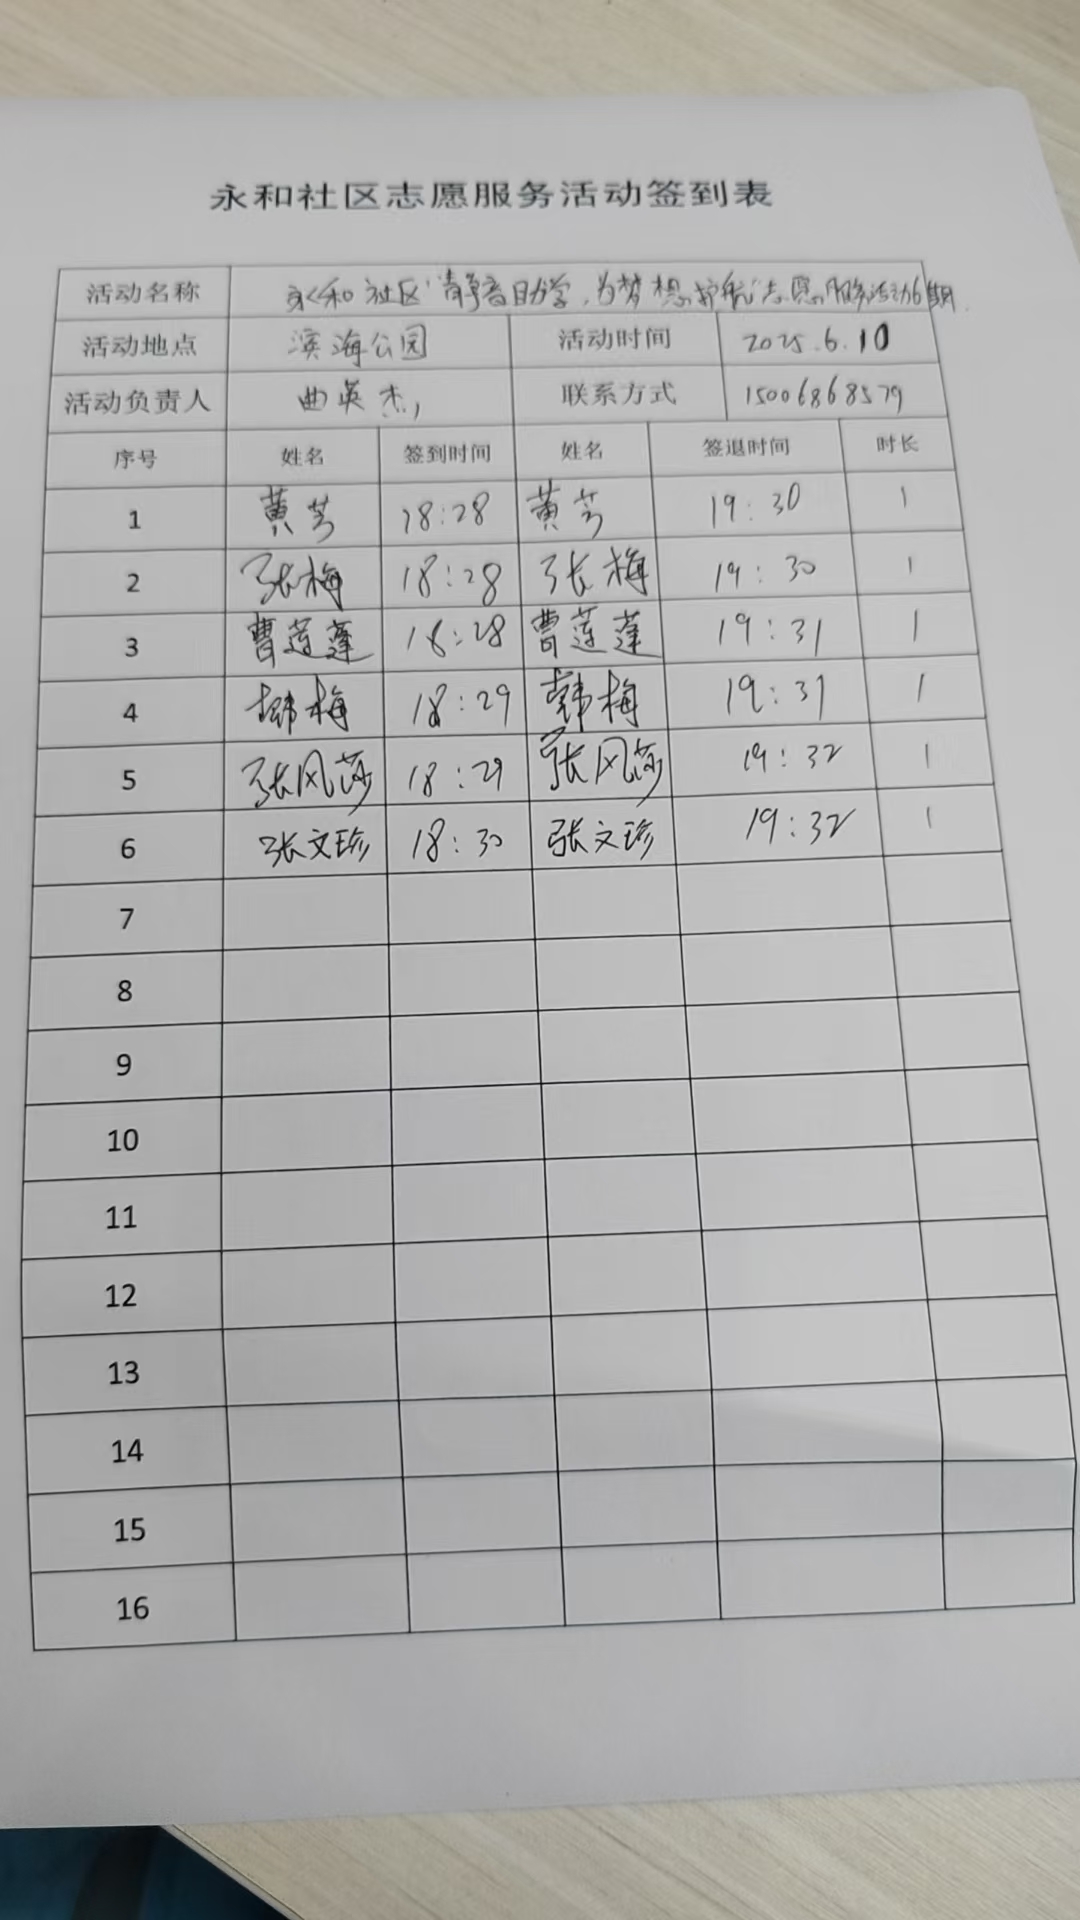 永和社区志愿服务活动签到表
活动名称 永和社区“静音助学,为梦想护航”志愿服务活动6期
活动地点 滨海公园 活动时间 2025.6.10
活动负责人 曲英杰 联系方式 15006868579
序号 姓名 签到时间 姓名 签退时间 时长
1 黄芳 18:28 黄芳 19:30 1
2 张梅 18:28 张梅 19:30 1
3 曹莲蓬 18:28 曹莲蓬 19:31 1
4 韩梅 18:29 韩梅 19:31 1
5 张风莎 18:29 张风莎 19:32 1
6 张文珍 18:30 张文珍 19:32 1
7
8
9
10
11
12
13
14
15
16